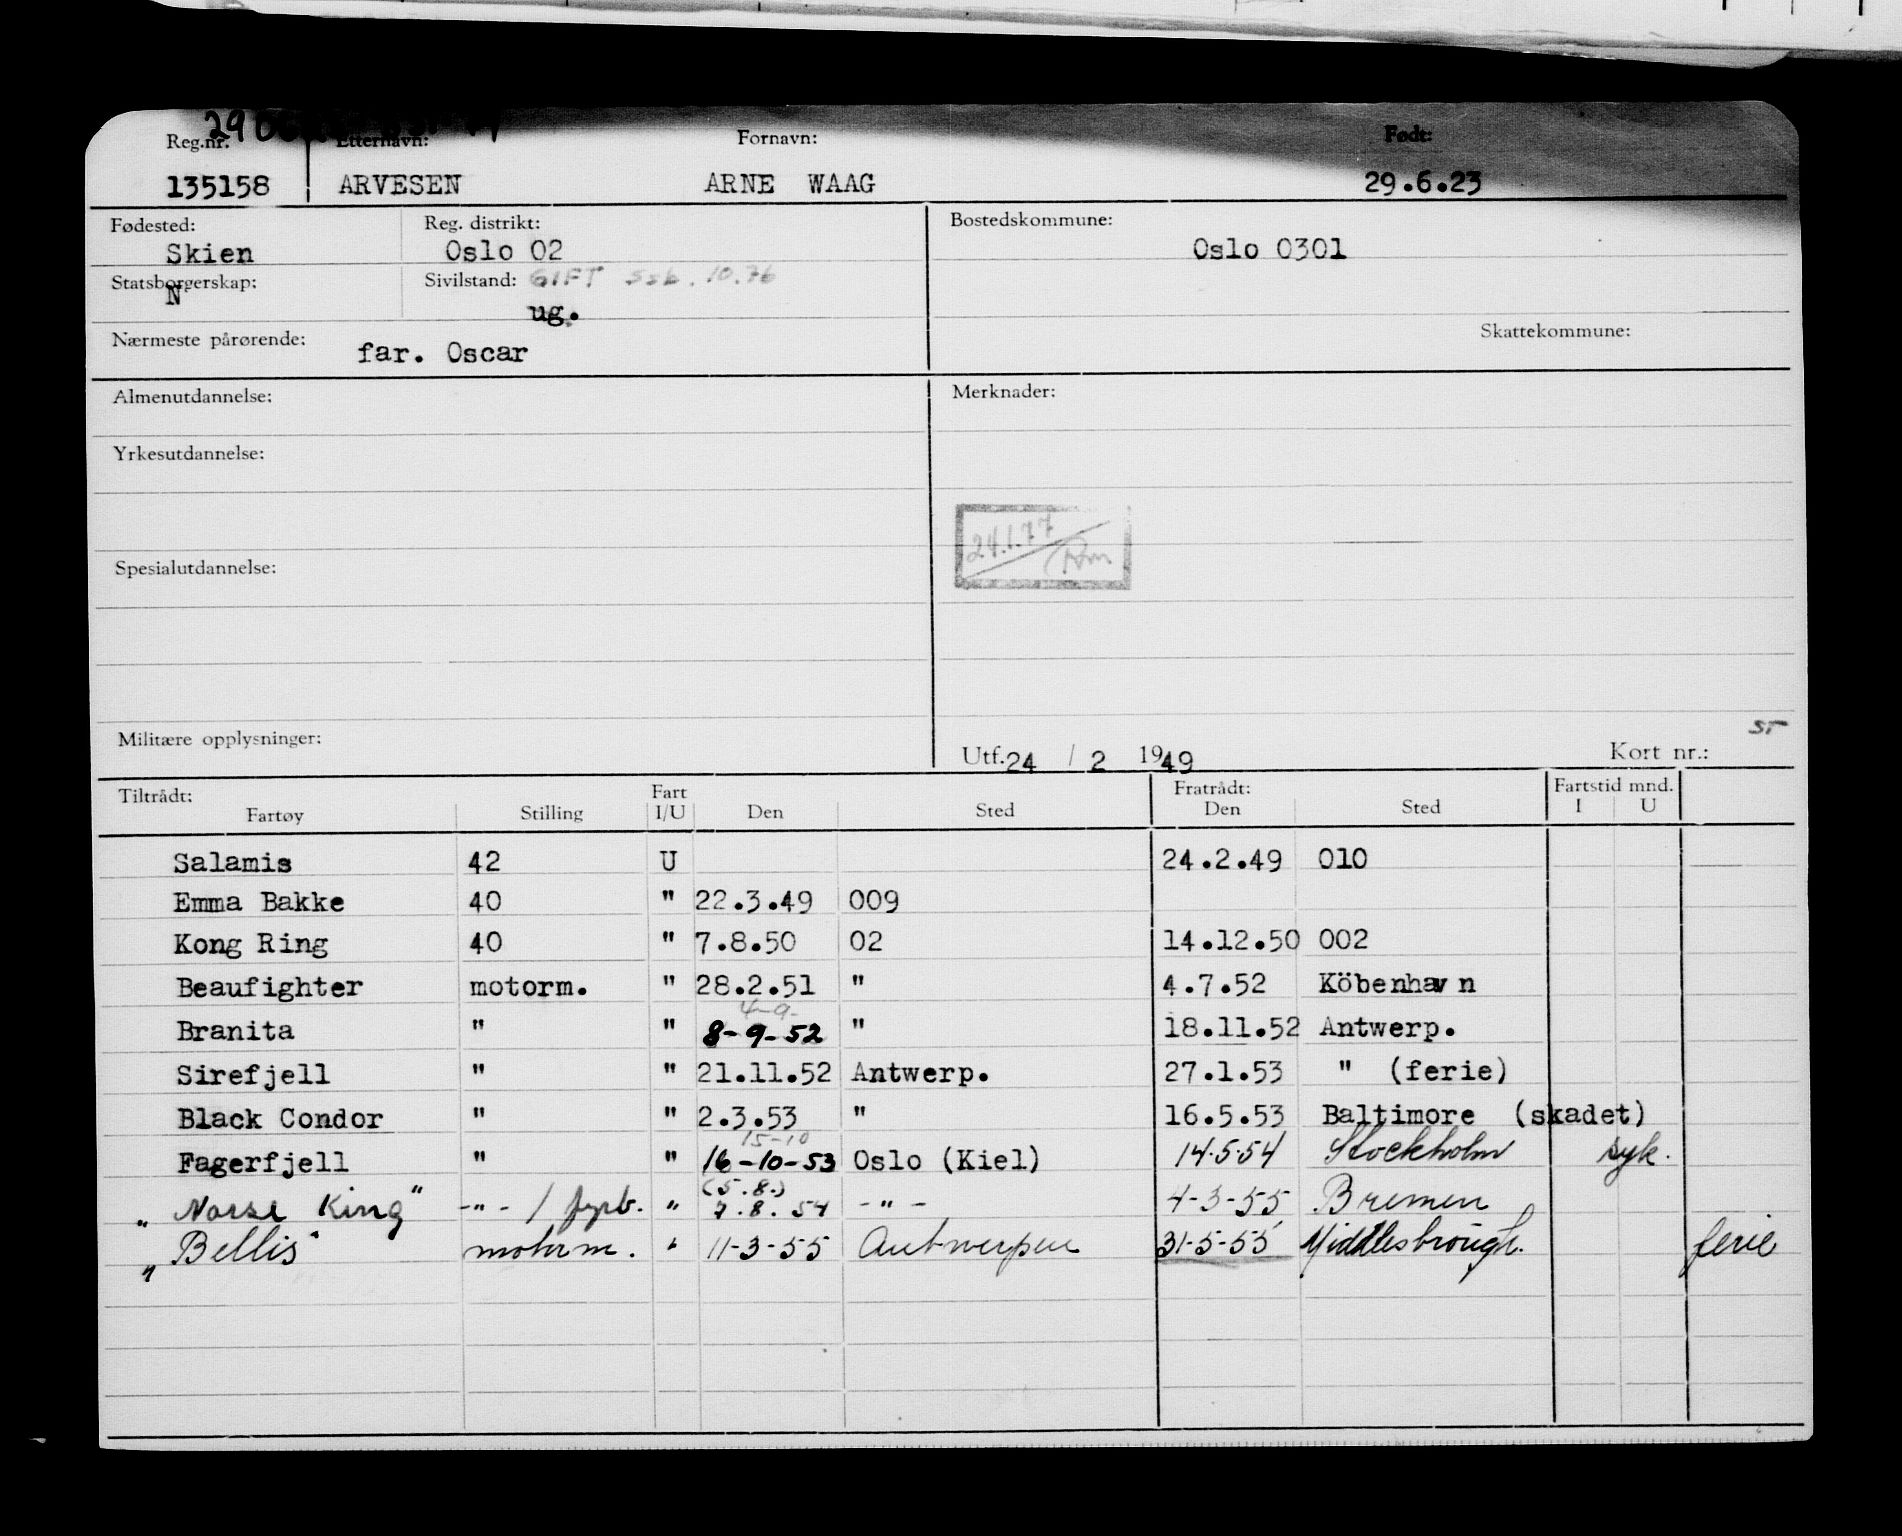 Reg.nr. Etternavn: Fornavn: Født:
135158 ARVESEN ARNE WAAG 29.6.23
Fødested: Reg. distrikt: Bostedskommune:
Skien Oslo 02 Oslo 0301
Statsborgerskap: Sivilstand: GIFT SSB. 10.76
N ug.
Nærmeste pårørende: far. Oscar Skattekommune:
Almenutdannelse: Merknader:
Yrkesutdannelse:
24.1.77
Spesialutdannelse:
Militære opplysninger: Utf. 24 / 2 1949 Kort nr.:
Tiltrådt: Fart Fratrådt: Fartstid mnd.
Fartøy Stilling I/U Den Sted Den Sted I U
Salamis 42 U 24.2.49 010
Emma Bakke 40 " 22.3.49 009
Kong Ring 40 " 7.8.50 02 14.12.50 002
Beaufighter motorm. " 28.2.51 " 4.7.52 Köbenhavn
4-9-
Branita " " 8-9-52 " 18.11.52 Antwerp.
Sirefjell " " 21.11.52 Antwerp. 27.1.53 " (ferie)
Black Condor " " 2.3.53 " 16.5.53 Baltimore (skadet)
15-10
Fagerfjell " " 16-10-53 Oslo (Kiel) 14.5.54 Stockholm syk.
(5.8.)
" Norse King" -"- / fyrb. " 7.8.54 -"- 4-3-55 Bremen
" Bellis" motorm. " 11-3-55 Antwerpen 31-5-55 Middlesbrough. ferie